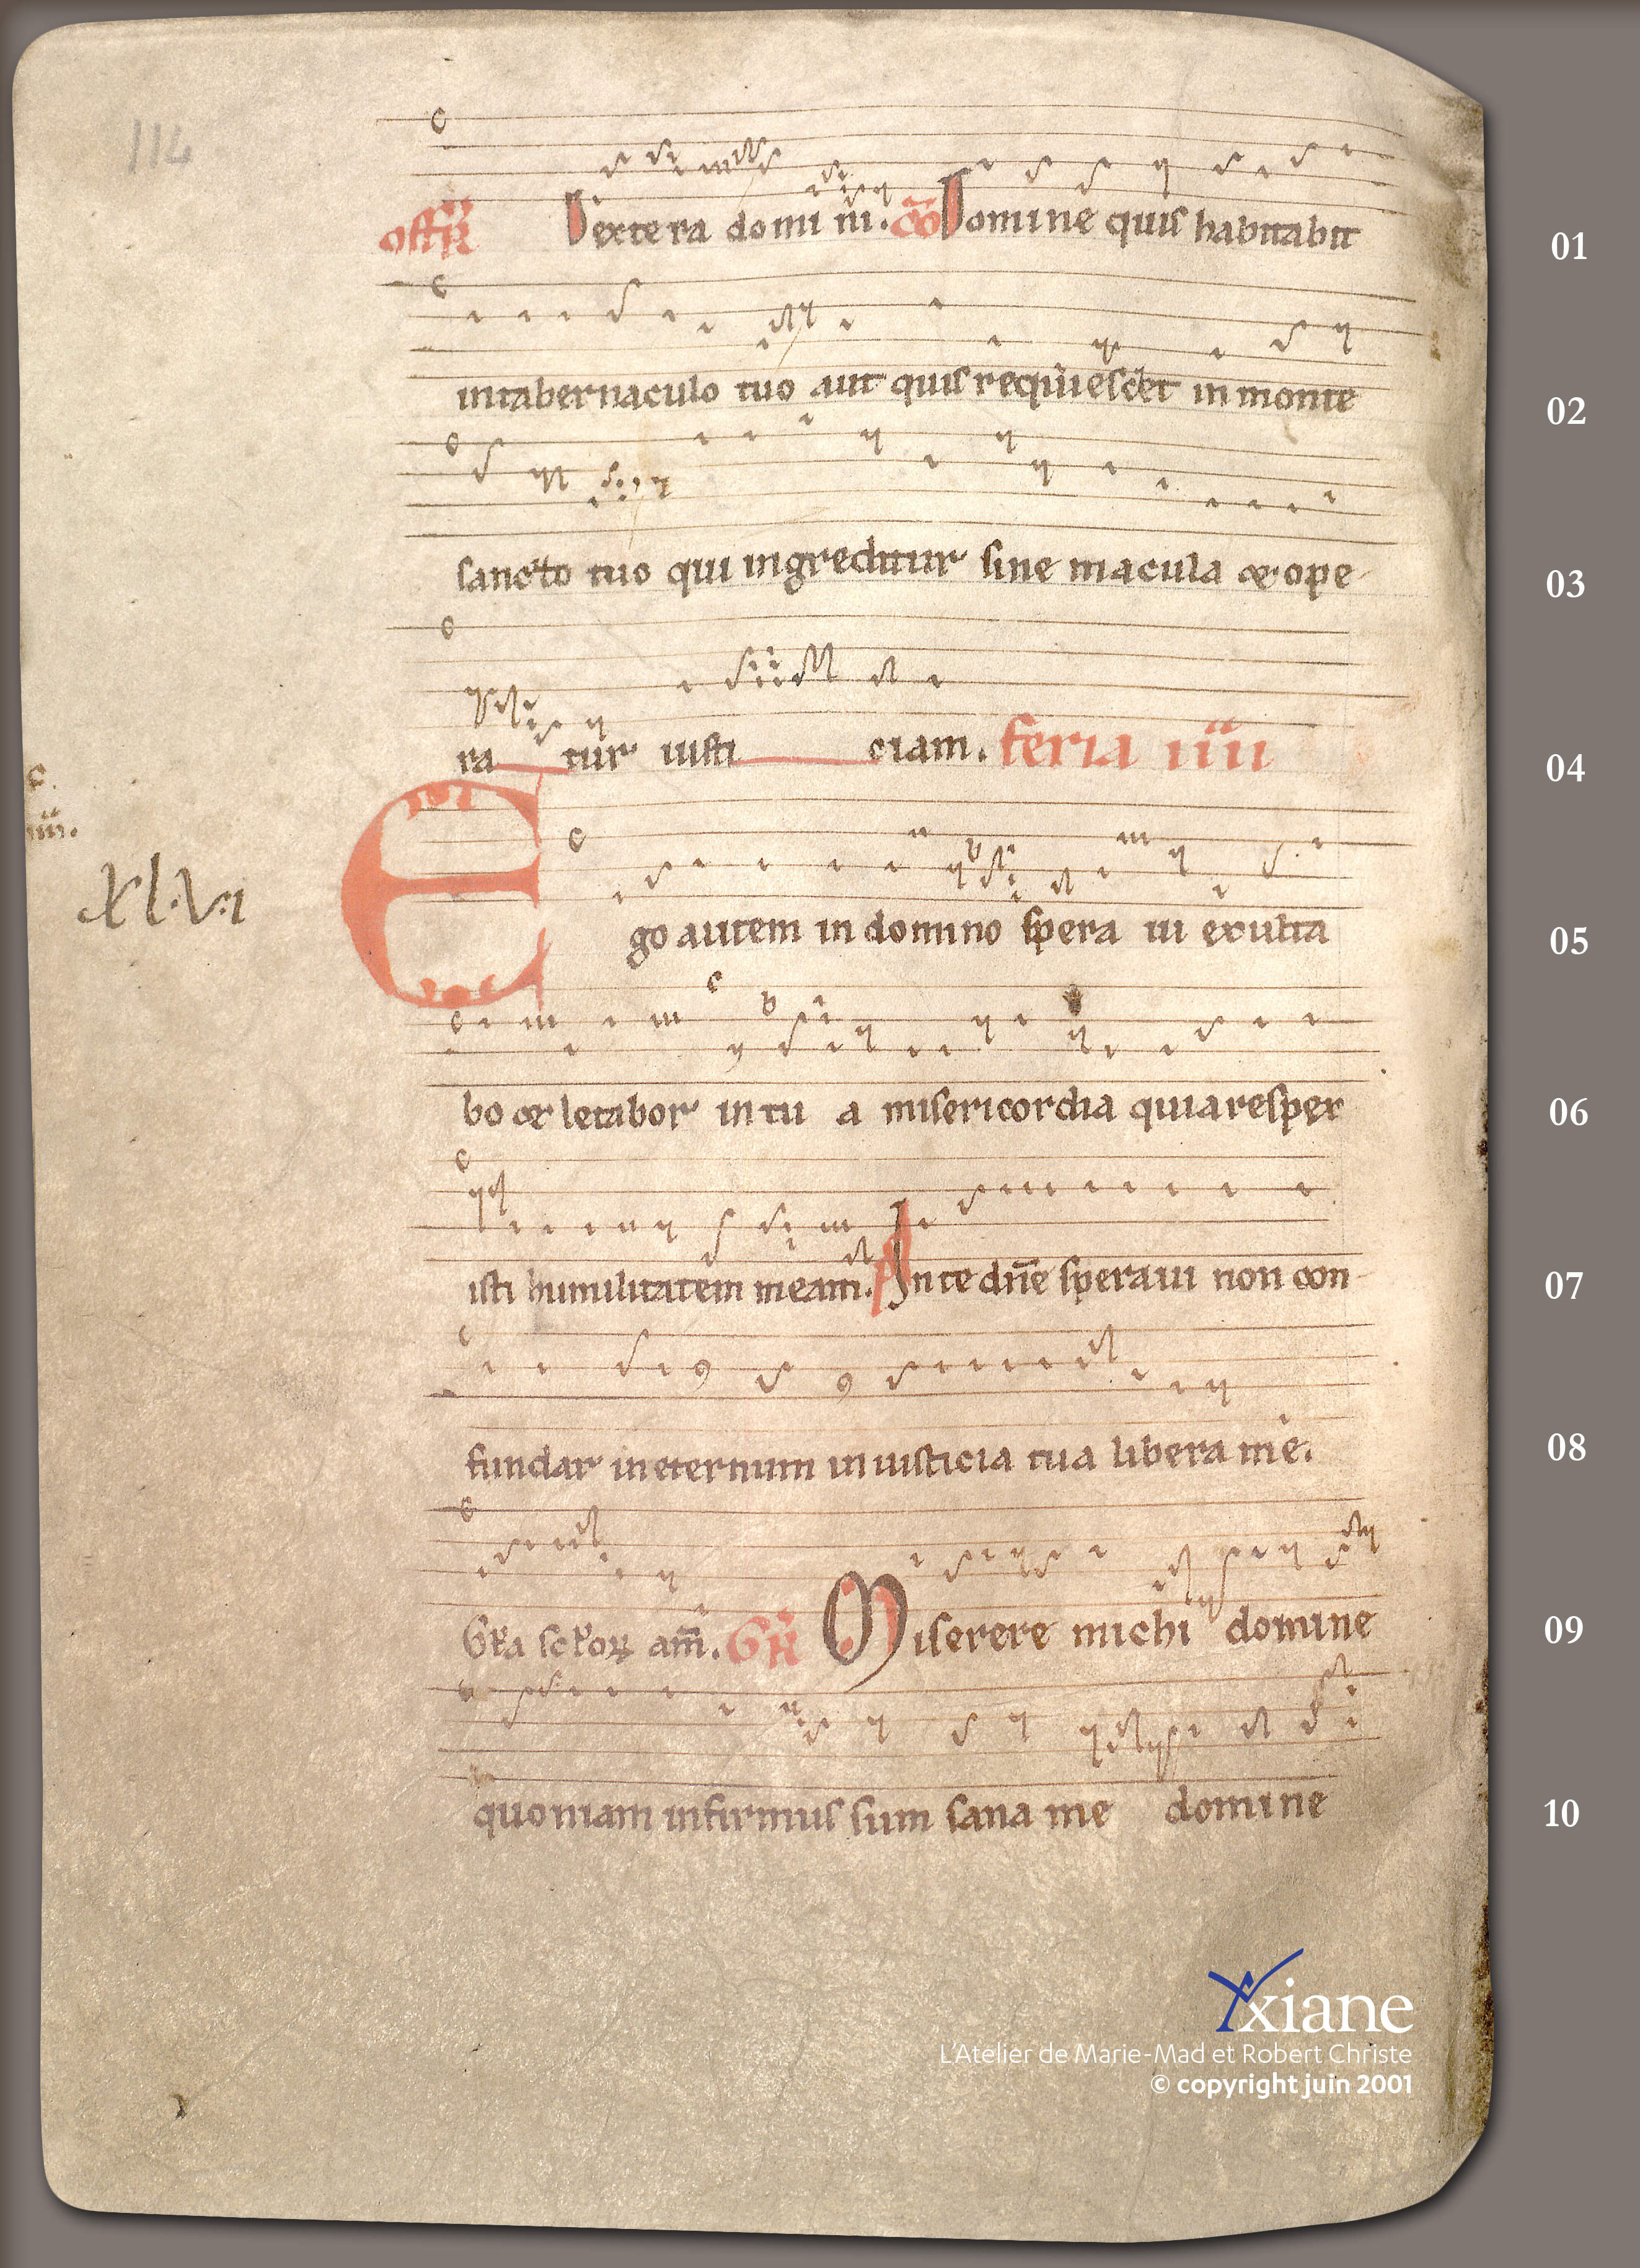 114
offR Dextera domi ni. co Domine quis habitabit 01
intabernaculo tuo aut quis requiescet in monte 02
sancto tuo qui ingreditur sine macula & ope- 03
ra tur iusti ciam. feria iiii 04
c.
iiii.
XL.V:I
Ego autem in domino spera ui exulta 05
bo & letabor in tu a misericordia quia resper 06
isti humilitatem meam. ps In te dn̄e speraui non con- 07
fundar in eternum in iusticia tua libera me. 08
Gła scłoꝝ am̄. GR Miserere michi domine 09
quoniam infirmus sum sana me domine 10
Yxiane
L'Atelier de Marie-Mad et Robert Christe
© copyright juin 2001